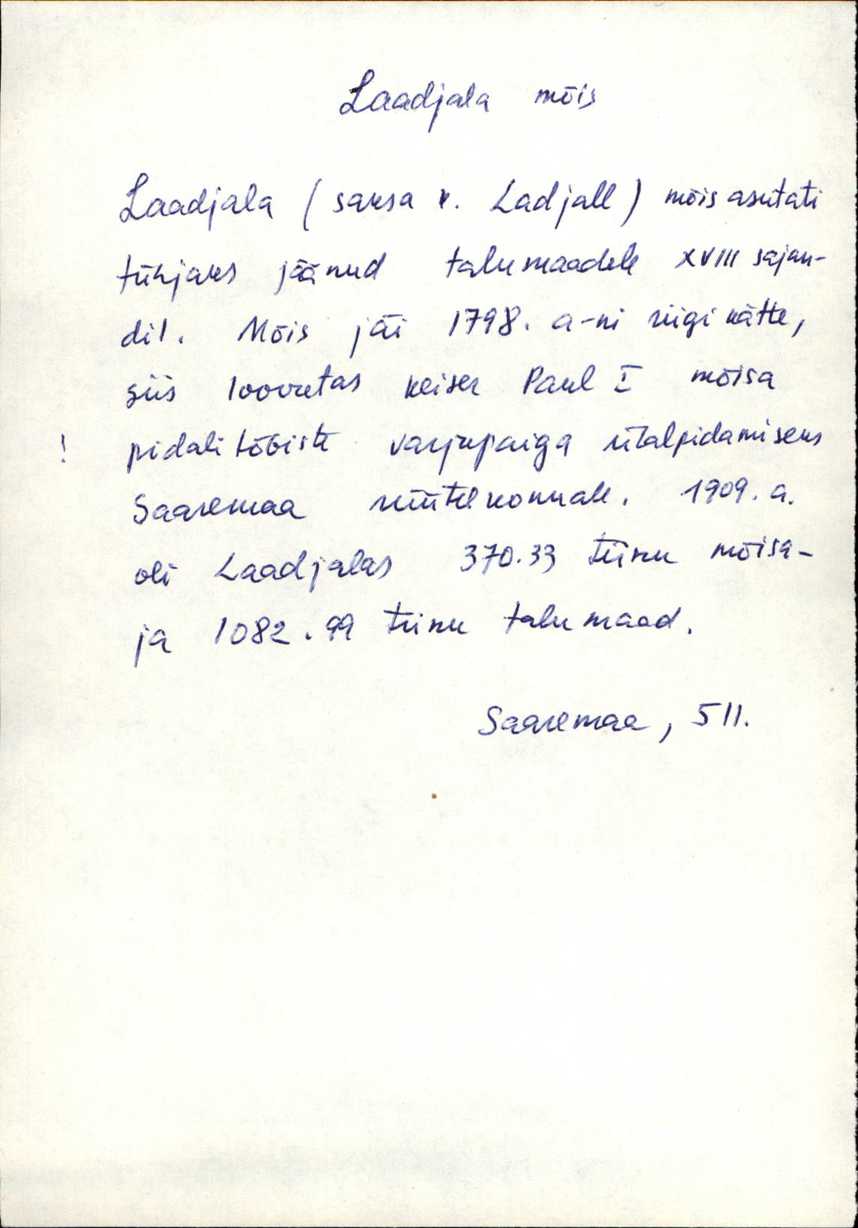 Laadjala mõis
Laadjala (saksa k. Ladjall) mõis asutati
tühjaks jäänud talumaadele XVIII sajan-
dil. Mõis jäi 1798. a-ni riigi kätte,
siis loovutas keiser Paul I mõisa
! pidalitõbiste varjupaiga ülalpidamiseks
Saaremaa rüütelkonnale. 1909. a.
oli Laadjalas 370.33 tiinu mõisa-
ja 1082.99 tiinu talumaad.
Saaremaa, 511.